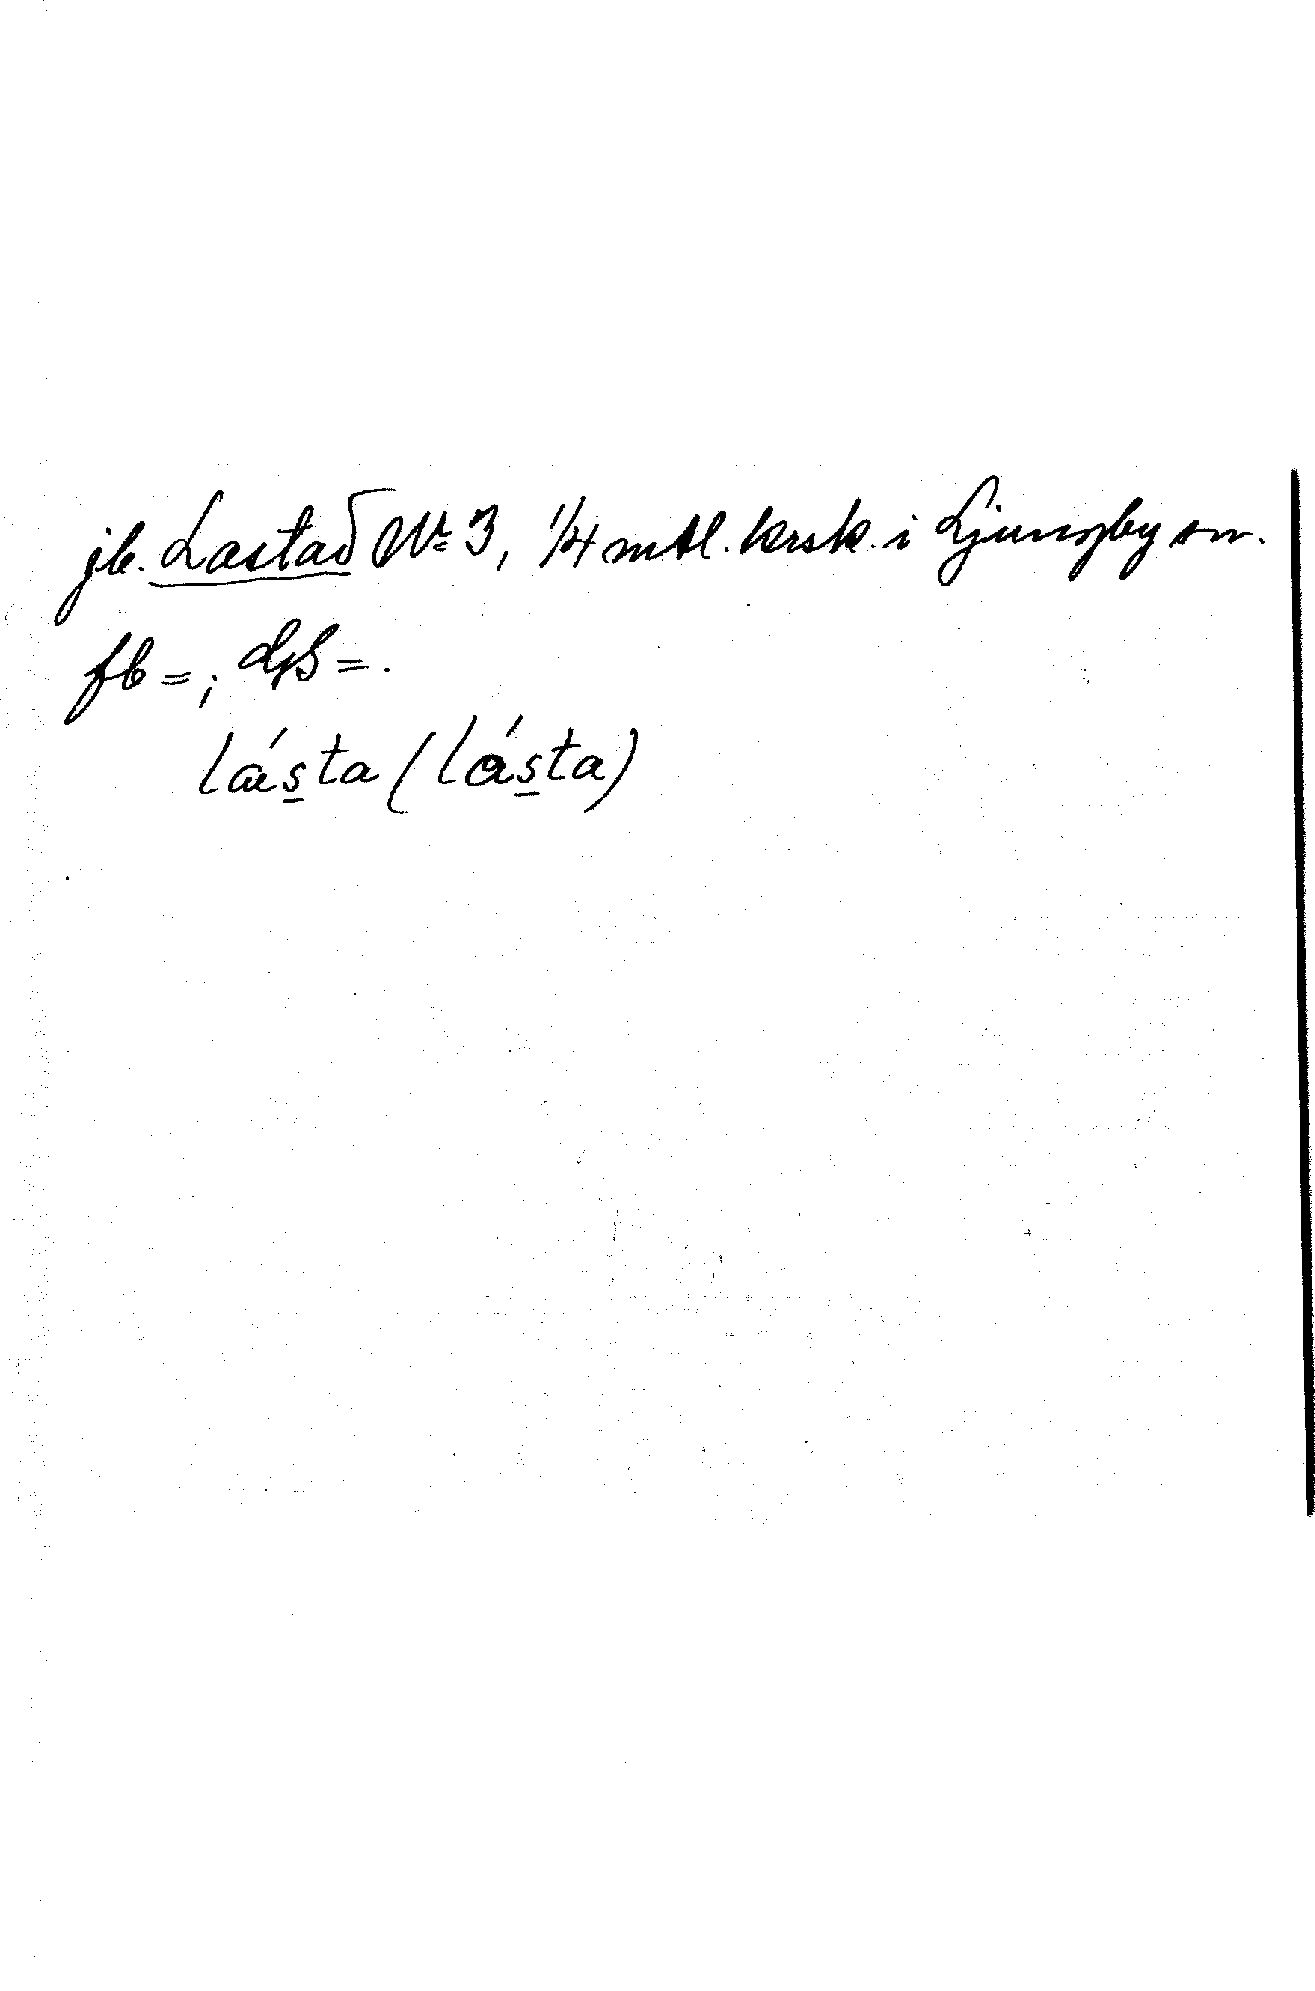 jb. Lastad No 3, 1/4 mtl. krsk. i Ljungby sn.
fb = ; GS = .
lásta (lásta)